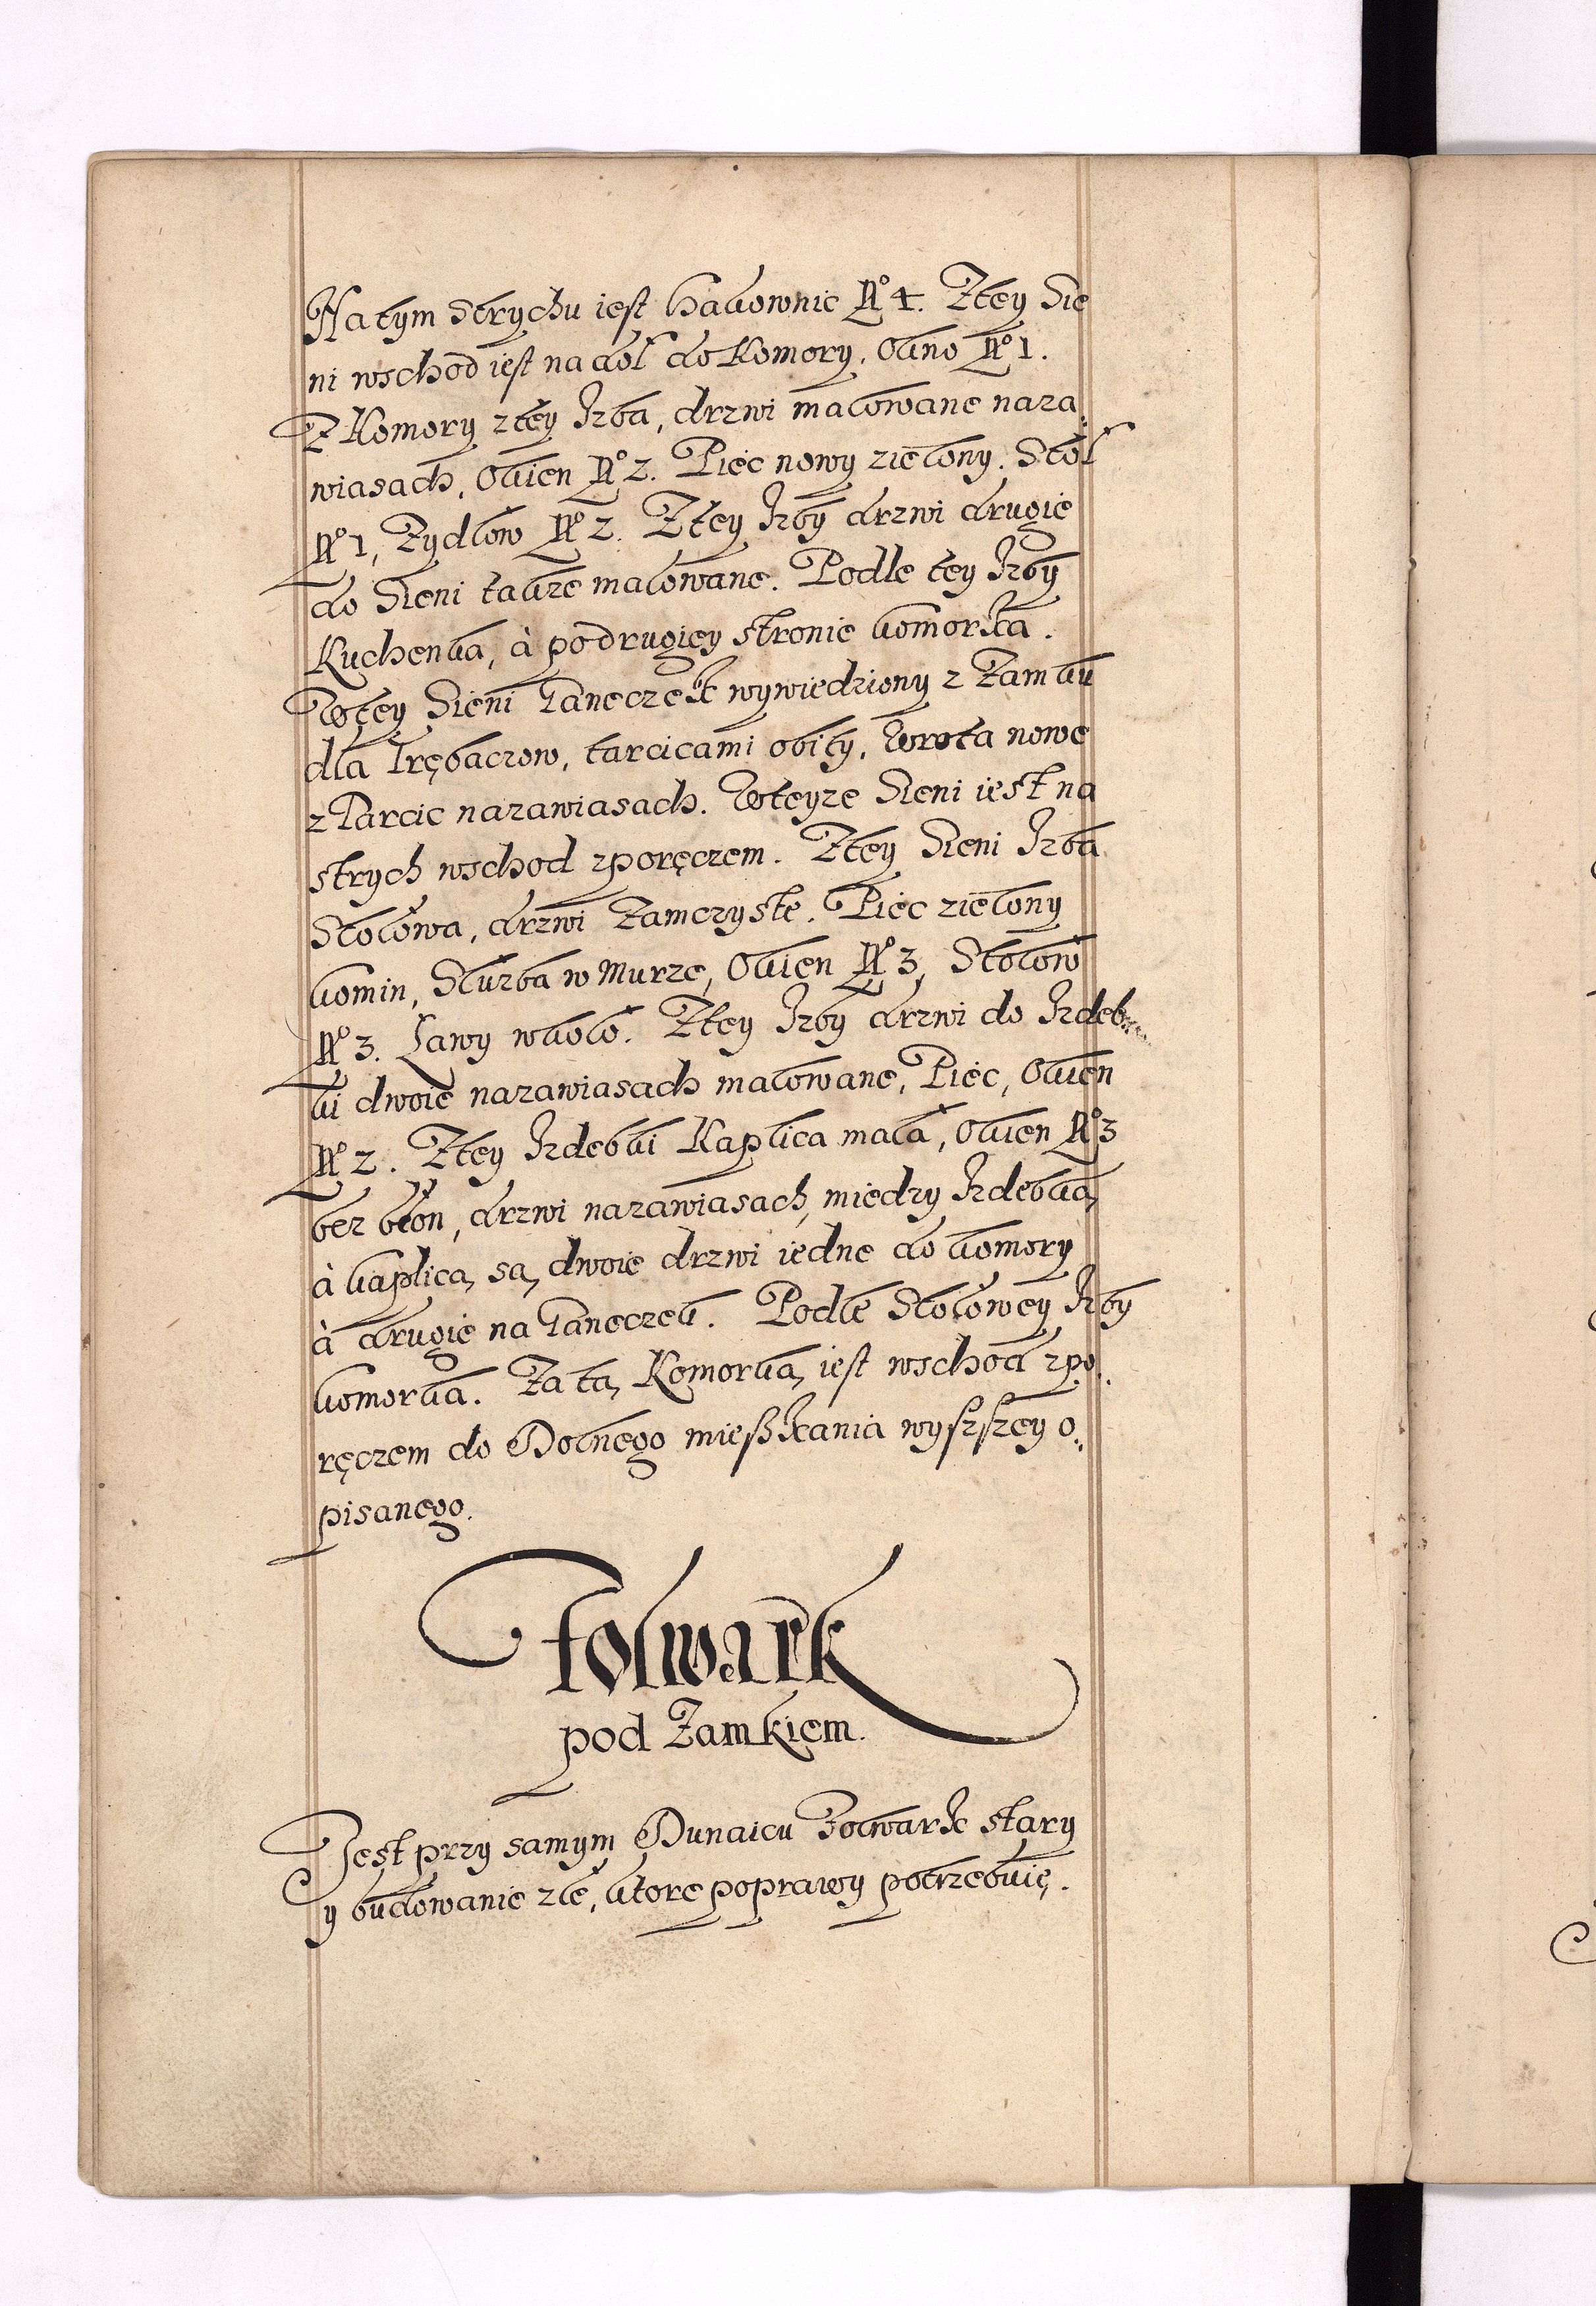 Na tym Strychu iest hakownic No 4. Z tey Sie
ni wschod iest na doł do Komory. Okno No 1.
Z Komory z tey Izba, drzwi malowane na za,,
wiasach, Okien No 2. Piec nowy zielony. Stoł
No 1, Zydlow No 2. Z tey Izby drzwi drugie
do Sieni takze malowane. Podle tey Izby
Kuchenka, à po drugiey stronie komorka.
W tey Sieni Ganeczek wywiedziony z Zamku
dla Trębaczow, tarcicami obity, Wrota nowe
z Tarcic na zawiasach. W teyze Sieni iest na
strych wschod z poręczem. Z tey Sieni Izba
Stołowa, drzwi Zamczyste. Piec zielony
komin, Słuzba w Murze, Okien No 3, Stołow
No 3. Ławy wkoło. Z tey Izby drzwi do Izdeb,,
ki dwoie na zawiasach malowane, Piec, Okien
No 2. Z tey Izdebki Kaplica mała, Okien No 3
bez błon, drzwi na zawiasach, miedzy Izdebką
à kaplicą są dwoie drzwi iedne do komory
à drugie na Ganeczek. Podle Stołowey Izby
komorka. Za tą Komorką iest wschod z po,,
ręczem do Dolnego mieszkania wyszszey o,,
pisanego.
Folwark
pod Zamkiem.
Jest przy samym Dunaicu Folwark stary
y budowanie złe, ktore poprawy potrzebuię.